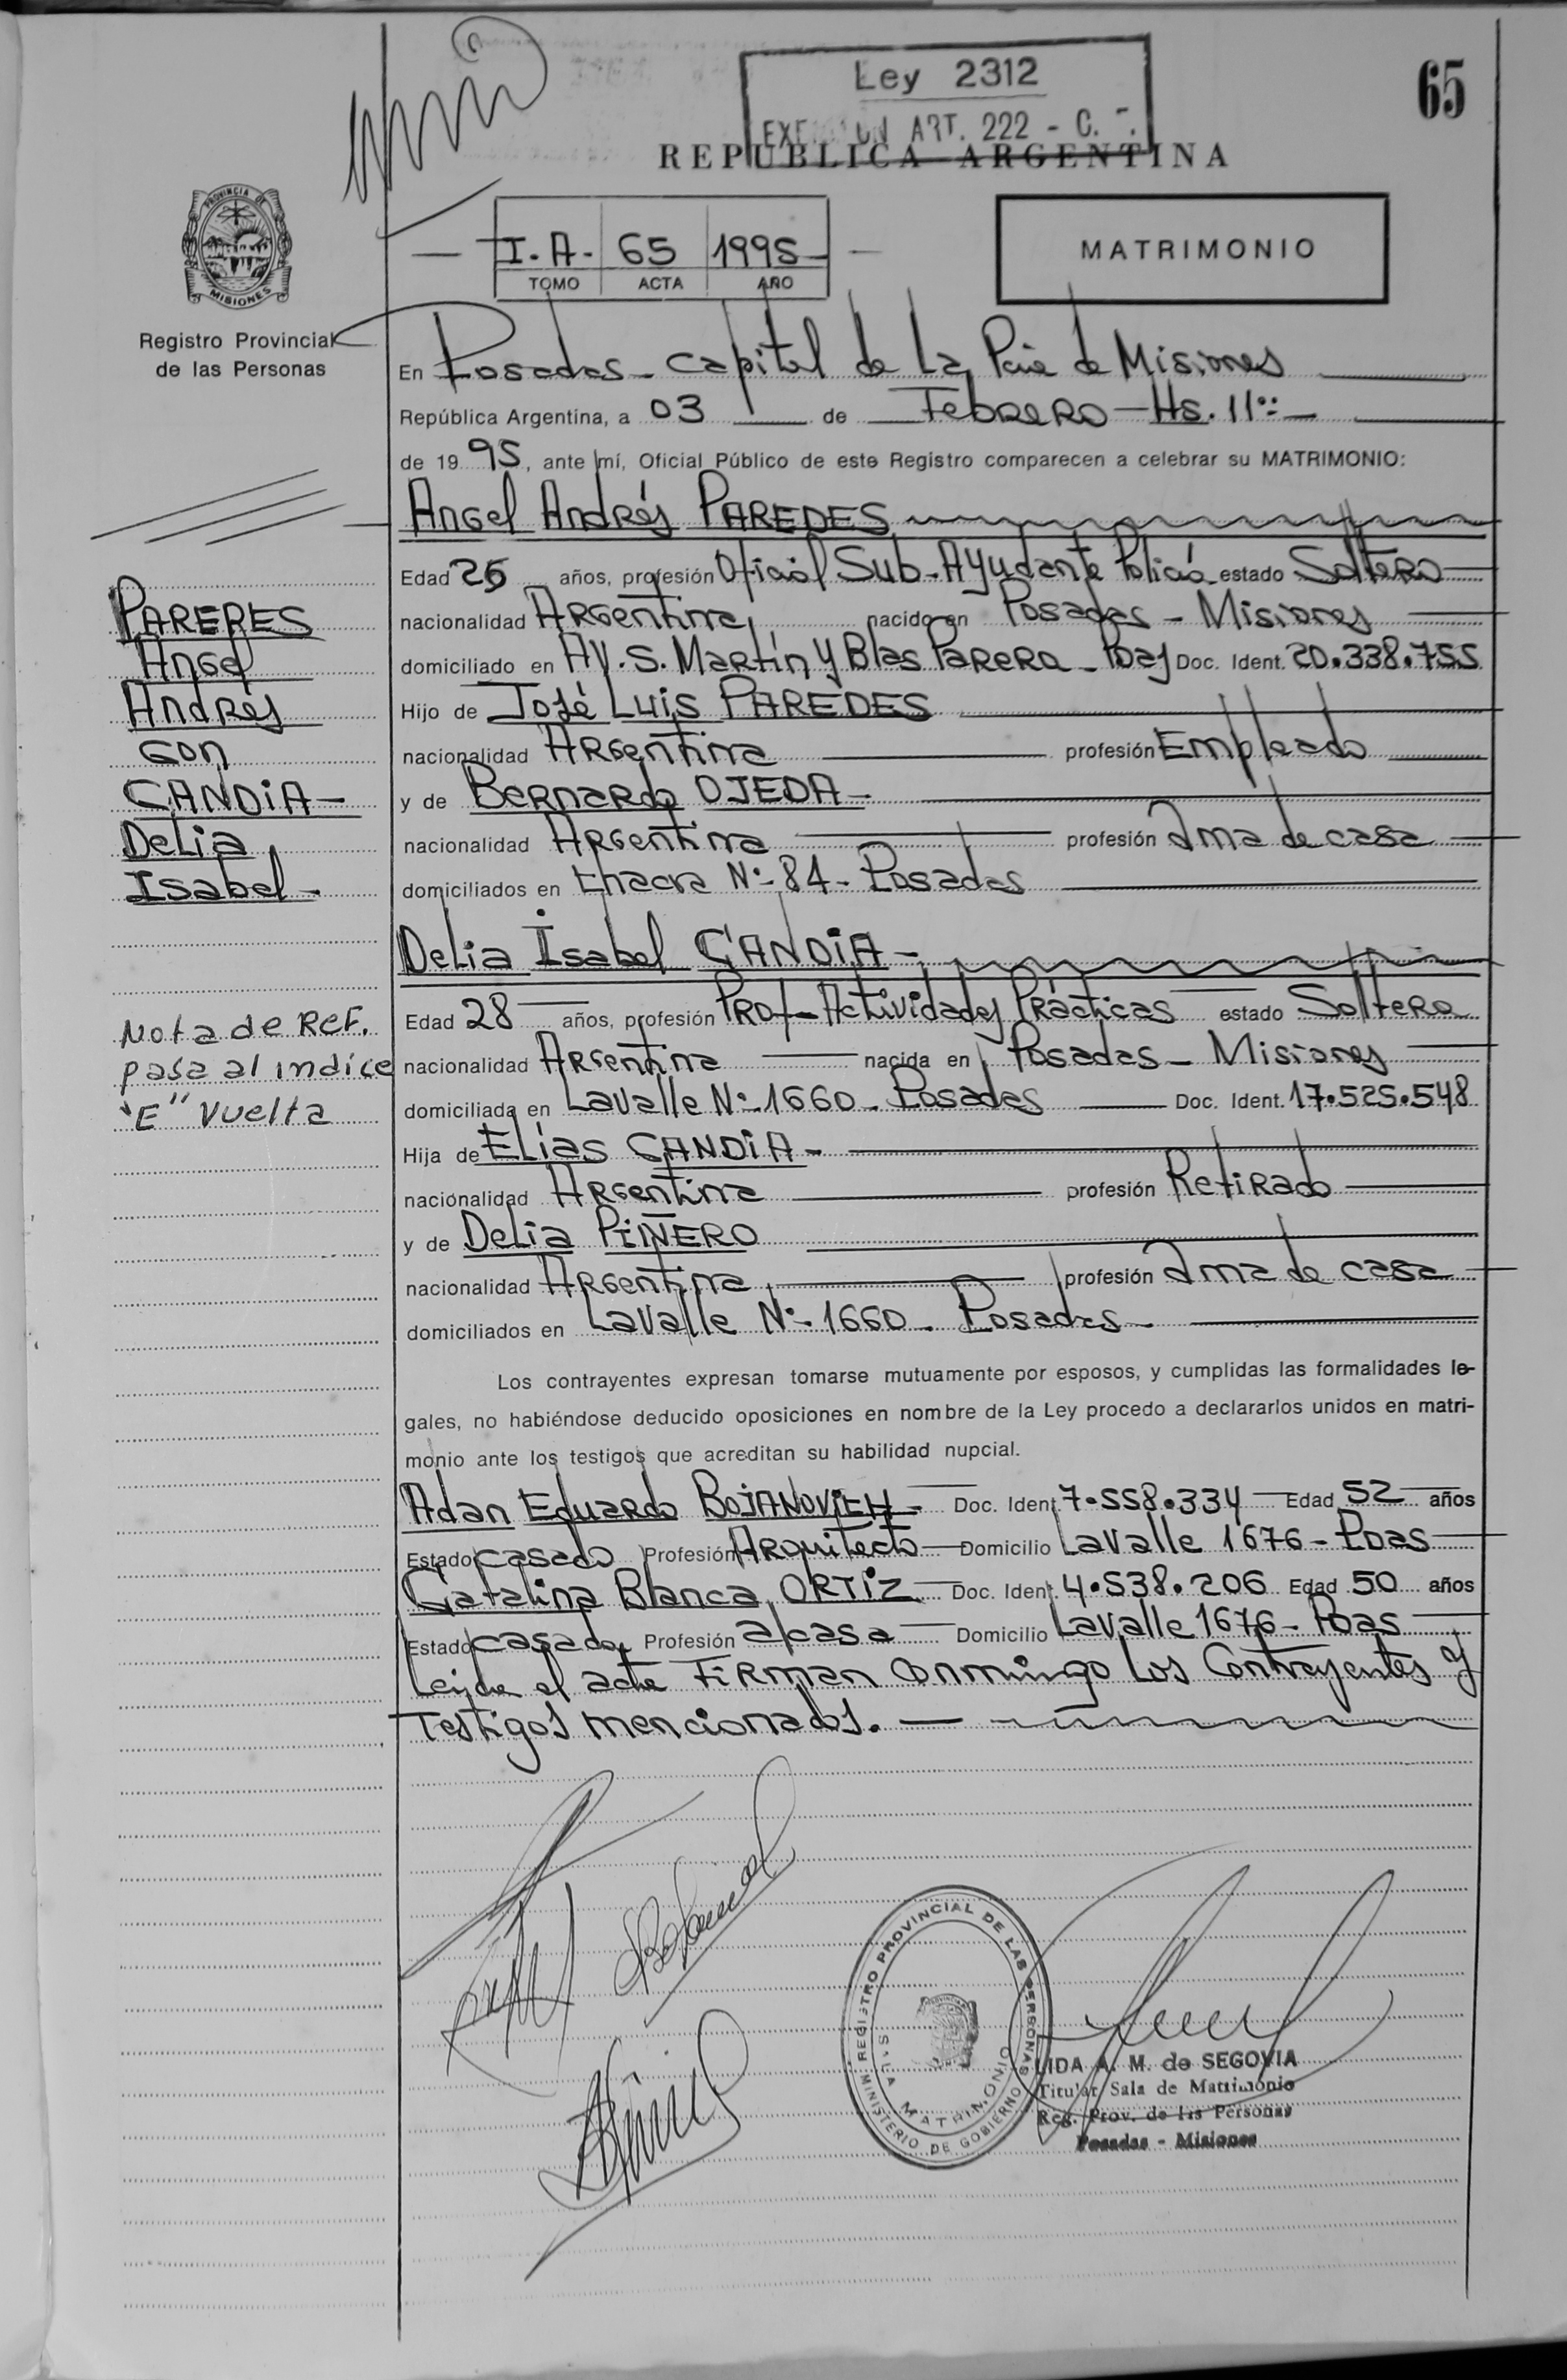 65
Ley 2312
ART. 222 - C.
REPUBLICA ARGENTINA
PROVINCIA DE
MISIONES
Registro Provincial
de las Personas
I.A- 65 1995
TOMO ACTA AÑO
MATRIMONIO
En Posadas - Capital de La Pcia de Misiones
República Argentina, a 03 de Febrero - Hs. 11
de 1995, ante mí, Oficial Público de este Registro comparecen a celebrar su MATRIMONIO:
Angel Andrés PAREDES
Edad años, profesión Oficial Sub-Ayudante Policía estado Soltero
nacionalidad Argentina nacido en Posadas - Misiones
domiciliado en AV. S. Martín y Blas Parera - Pdas Doc. Ident. 20.338.755
Hijo de José Luis PAREDES
nacionalidad Argentina profesión Empleado
y de Bernarda OJEDA-
nacionalidad Argentina profesión Ama de casa
domiciliados en Chacra Nº-84- Posadas
PAREDES
Angel
Andrés
con
CANDIA-
Delia
Isabel-
Delia Isabel CANDIA-
Edad 28 años, profesión Prof-Actividades Prácticas estado Soltera
nacionalidad Argentina nacida en Posadas - Misiones
domiciliada en Lavalle Nº-1660- Posadas Doc. Ident. 17.525.548
Hija de Elías CANDIA-
nacionalidad Argentina profesión Retirado
y de Delia PIÑERO
nacionalidad Argentina profesión Ama de casa
domiciliados en Lavalle Nº-1660- Posadas-
Nota de Ref.
pasa al indice
"E" Vuelta
Los contrayentes expresan tomarse mutuamente por esposos, y cumplidas las formalidades le-
gales, no habiéndose deducido oposiciones en nombre de la Ley procedo a declararlos unidos en matri-
monio ante los testigos que acreditan su habilidad nupcial.
Adan Eduardo BOJANOVICH- Doc. Ident. 7.558.334 Edad 52 años
Estado casado Profesión Arquitecto Domicilio Lavalle 1676- Pdas
Catalina Blanca ORTIZ Doc. Ident. 4.538.206 Edad 50 años
Estado casada Profesión a/casa Domicilio Lavalle 1676- Pdas
Leída el acta Firman conmigo los Contrayentes y
Testigos mencionados.
REGISTRO PROVINCIAL DE LAS PERSONAS
MINISTERIO DE GOBIERNO
SALA MATRIMONIO
LIDA A. M. de SEGOVIA
Titular Sala de Matrimonio
Reg. Prov. de las Personas
Posadas - Misiones